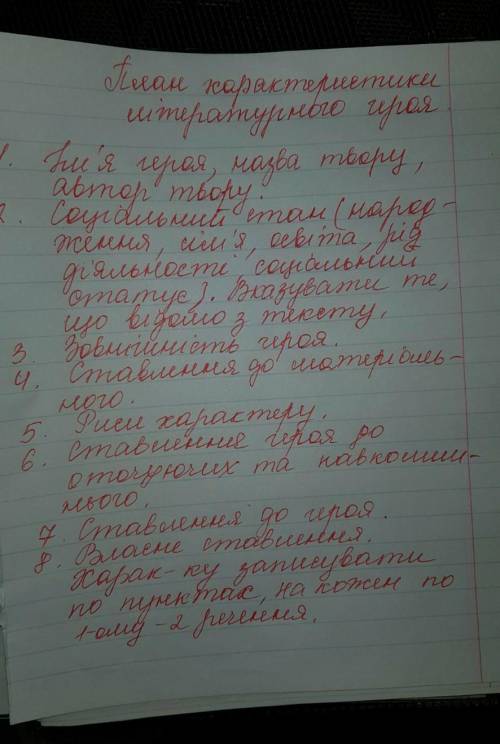 План характеристики
літературного героя.
1. Ім'я героя, назва твору,
автор твору.
2. Соціальний стан (народ-
ження, сім'я, освіта, рід
діяльності, соціальний
статус). Вказувати те,
що відомо з тексту.
3. Зовнішність героя.
4. Ставлення до матеріаль-
ного.
5. Риси характеру.
6. Ставлення героя до
оточуючих та навколиш-
нього.
7. Ставлення до героя.
8. Власне ставлення.
Харак-ку записувати
по пунктах, на кожен по
1-ому-2 речення.